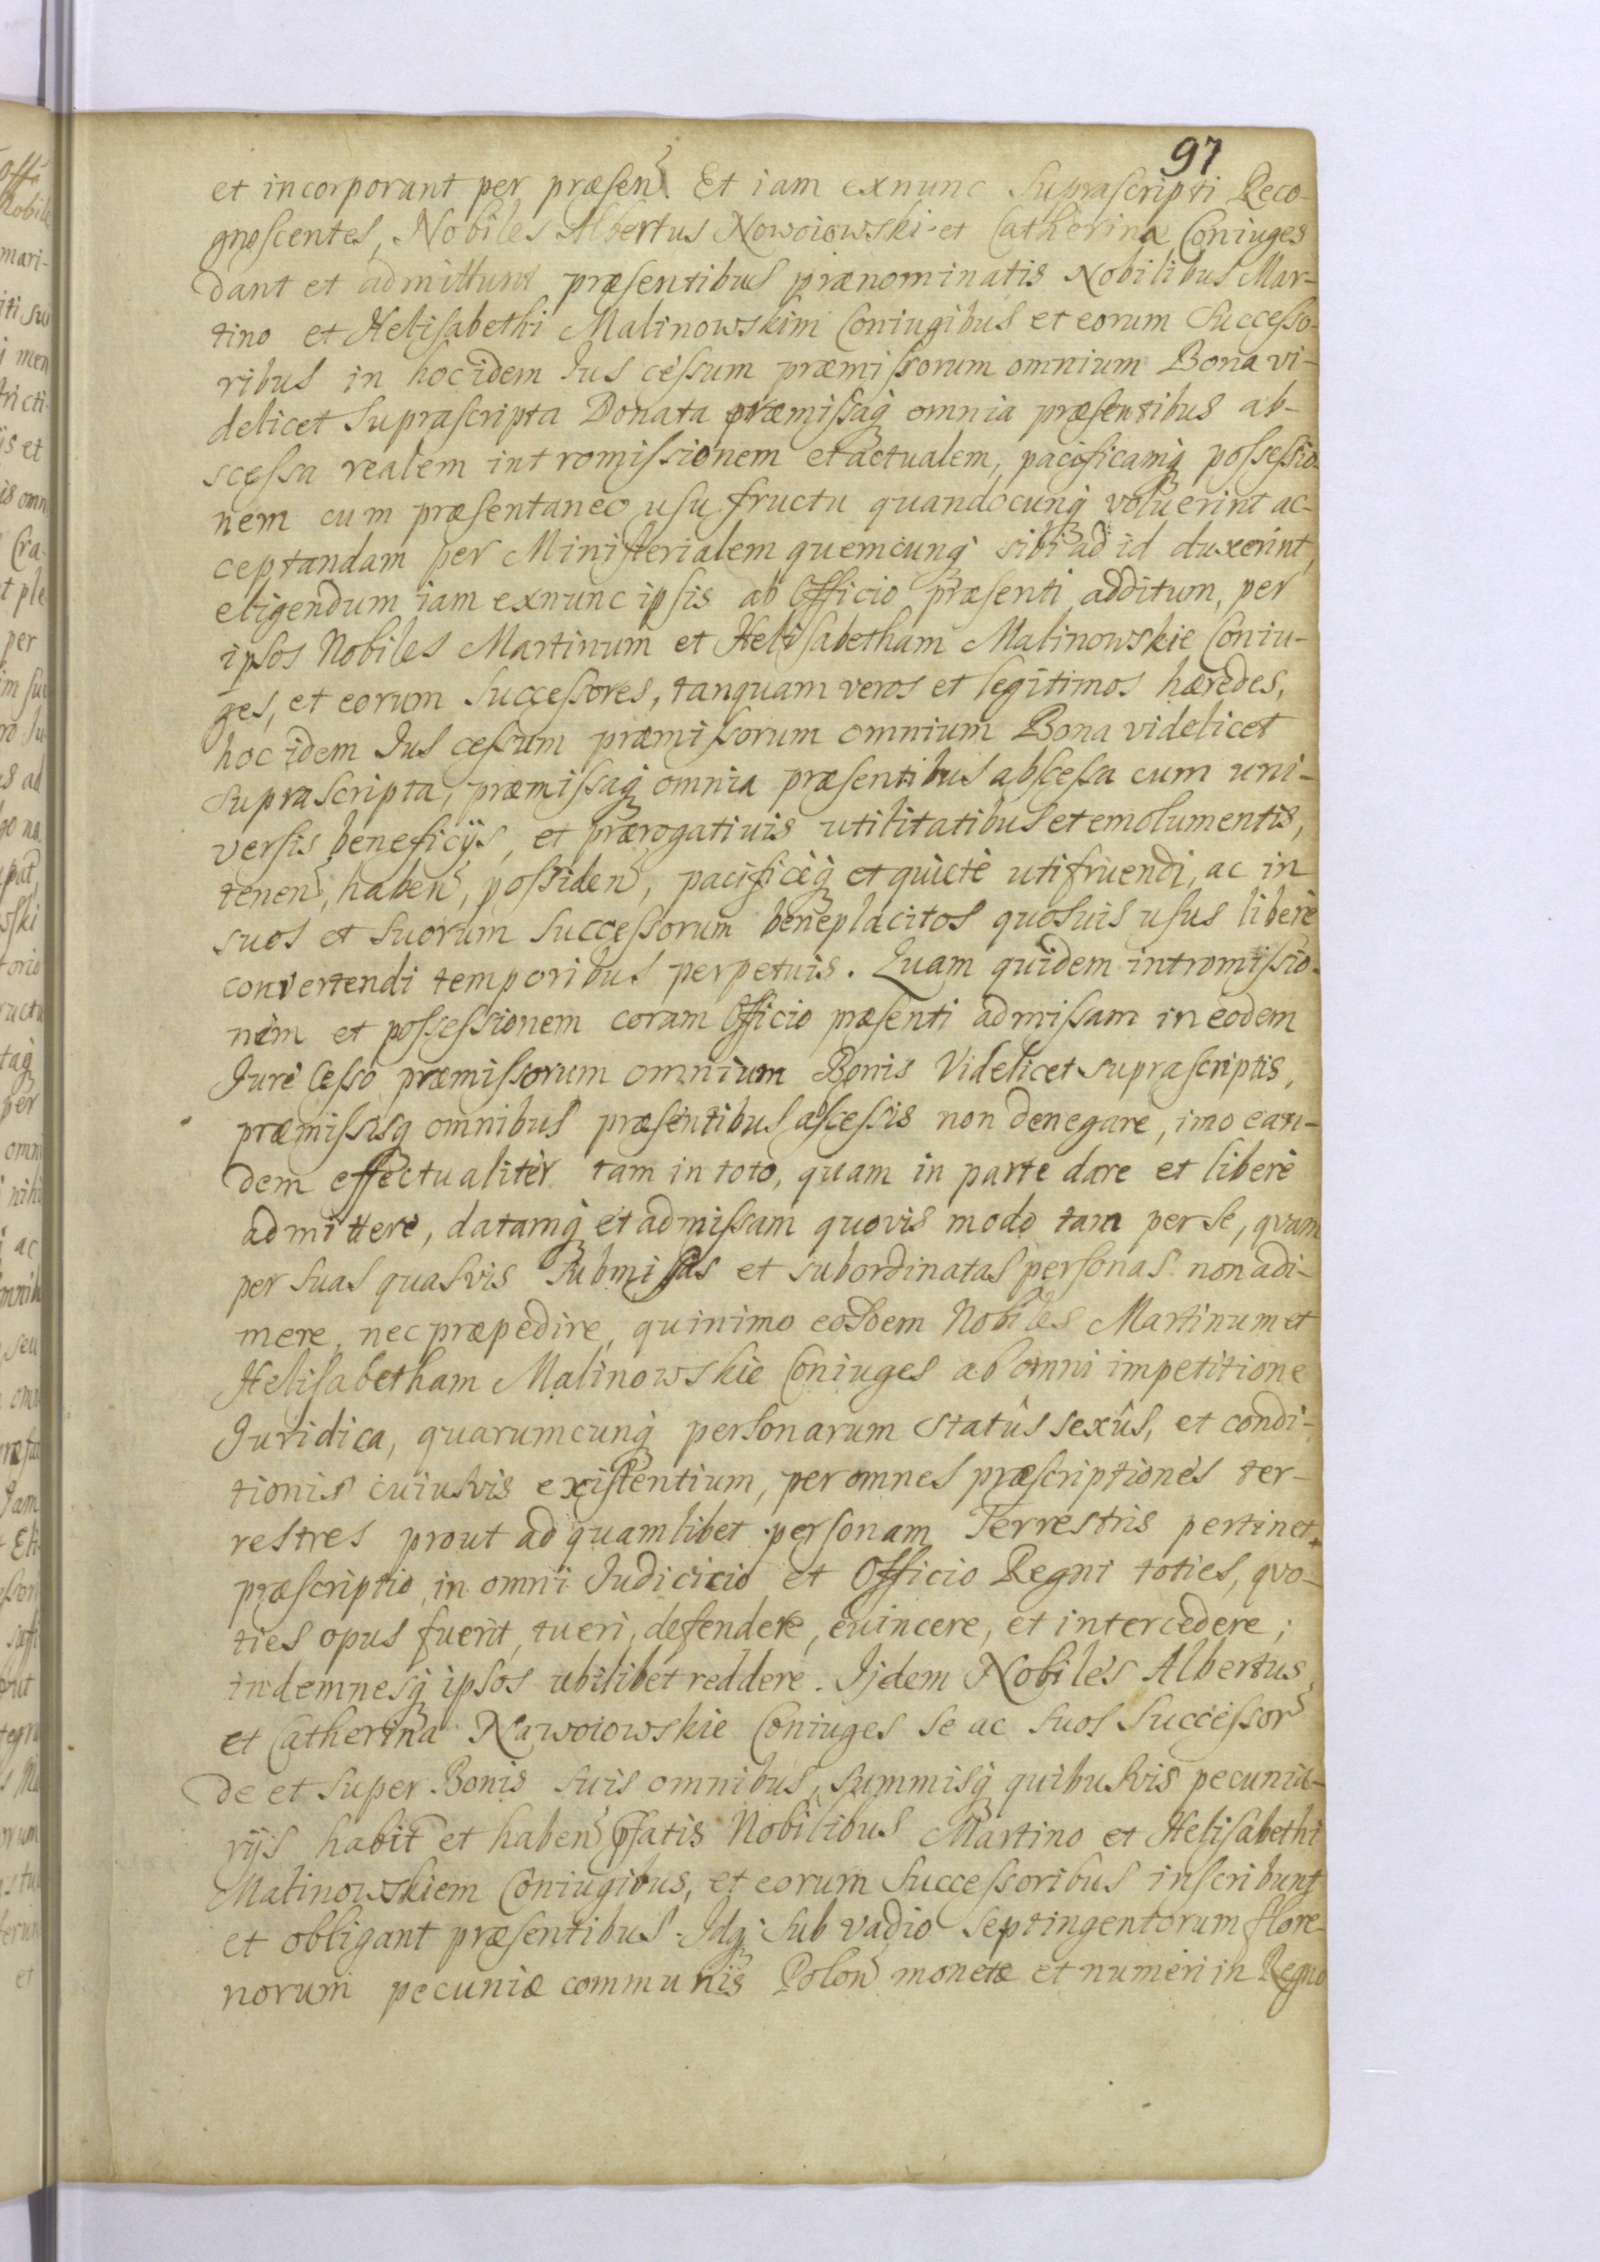 97
et incorporant per præsen. Et iam exnunc Suprascripti Reco-
gnoscentes, Nobiles Albertus Nowoiowski et Catherina Coniuges
dant et admittunt præsentibus prænominatis Nobilibus Mar-
tino et Helisabethi Malinowskim Coniugibus et eorum Successo-
ribus in hoc idem Ius cessum præmissorum omnium Bona vi-
delicet Suprascripta Donata præmissaq omnia præsentibus ab-
scessa realem intromissionem et actualem, pacificamq possessio-
nem cum præsentaneo usu fructu quandocunq voluerint ac-
ceptandam per Ministerialem quemcunq sibi ad id duxerint
eligendum iam exnunc ipsis ab Officio præsenti additum, per
ipsos Nobiles Martinum et Helisabetham Malinowskie Coniu-
ges, et eorum Successores, tanquam veros et legitimos hæredes,
hoc idem Ius cessum præmissorum omnium Bona videlicet
Suprascripta, præmissaq omnia præsentibus abscessa cum uni-
versis beneficijs, et prærogativis utilitatibus et emolumentis,
tenen, haben, possiden, pacificèq et quietè utifruendi, ac in
suos et suorum Successorum beneplacitos quosuis usus liberè
convertendi temporibus perpetuis. Quam quidem intromissio-
nem et possessionem coram Officio præsenti admissam in eodem
Iure Cesso præmissorum omnium Bonis Videlicet suprascriptis,
præmissisq omnibus præsentibus abscessis non denegare, imo ean-
dem effectualiter tam in toto, quam in parte dare et liberè
admittere, datamq et admissam quovis modo tam per se, quam
per suas quasvis submissas et subordinatas personas non adi-
mere, nec præpedire, quinimo eosdem Nobiles Martinum et
Helisabetham Malinowskie Coniuges ab omni impetitione
Iuridica, quarumcunq personarum statûs sexûs, et condi-
tionis cuiusvis existentium, per omnes præscriptiones ter-
restres prout ad quamlibet personam Terrestris pertinet
præscriptio, in omni Iudicicio et Officio Regni toties, quo-
ties opus fuerit, tueri, defendere, evincere, et intercedere;
indemnesq ipsos ubilibet reddere. Ijdem Nobiles Albertus
et Catherina Nawoiowskie Coniuges se ac suos Successor
de et super Bonis suis omnibus, summisq quibusvis pecunia-
rijs habit et haben pfatis Nobilibus Martino et Helisabethi
Malinowskiem Coniugibus, et eorum Successoribus inscribunt
et obligant præsentibus. Idq sub vadio septingentorum flore-
norum pecuniæ communis Polon monetæ et numeri in Regno